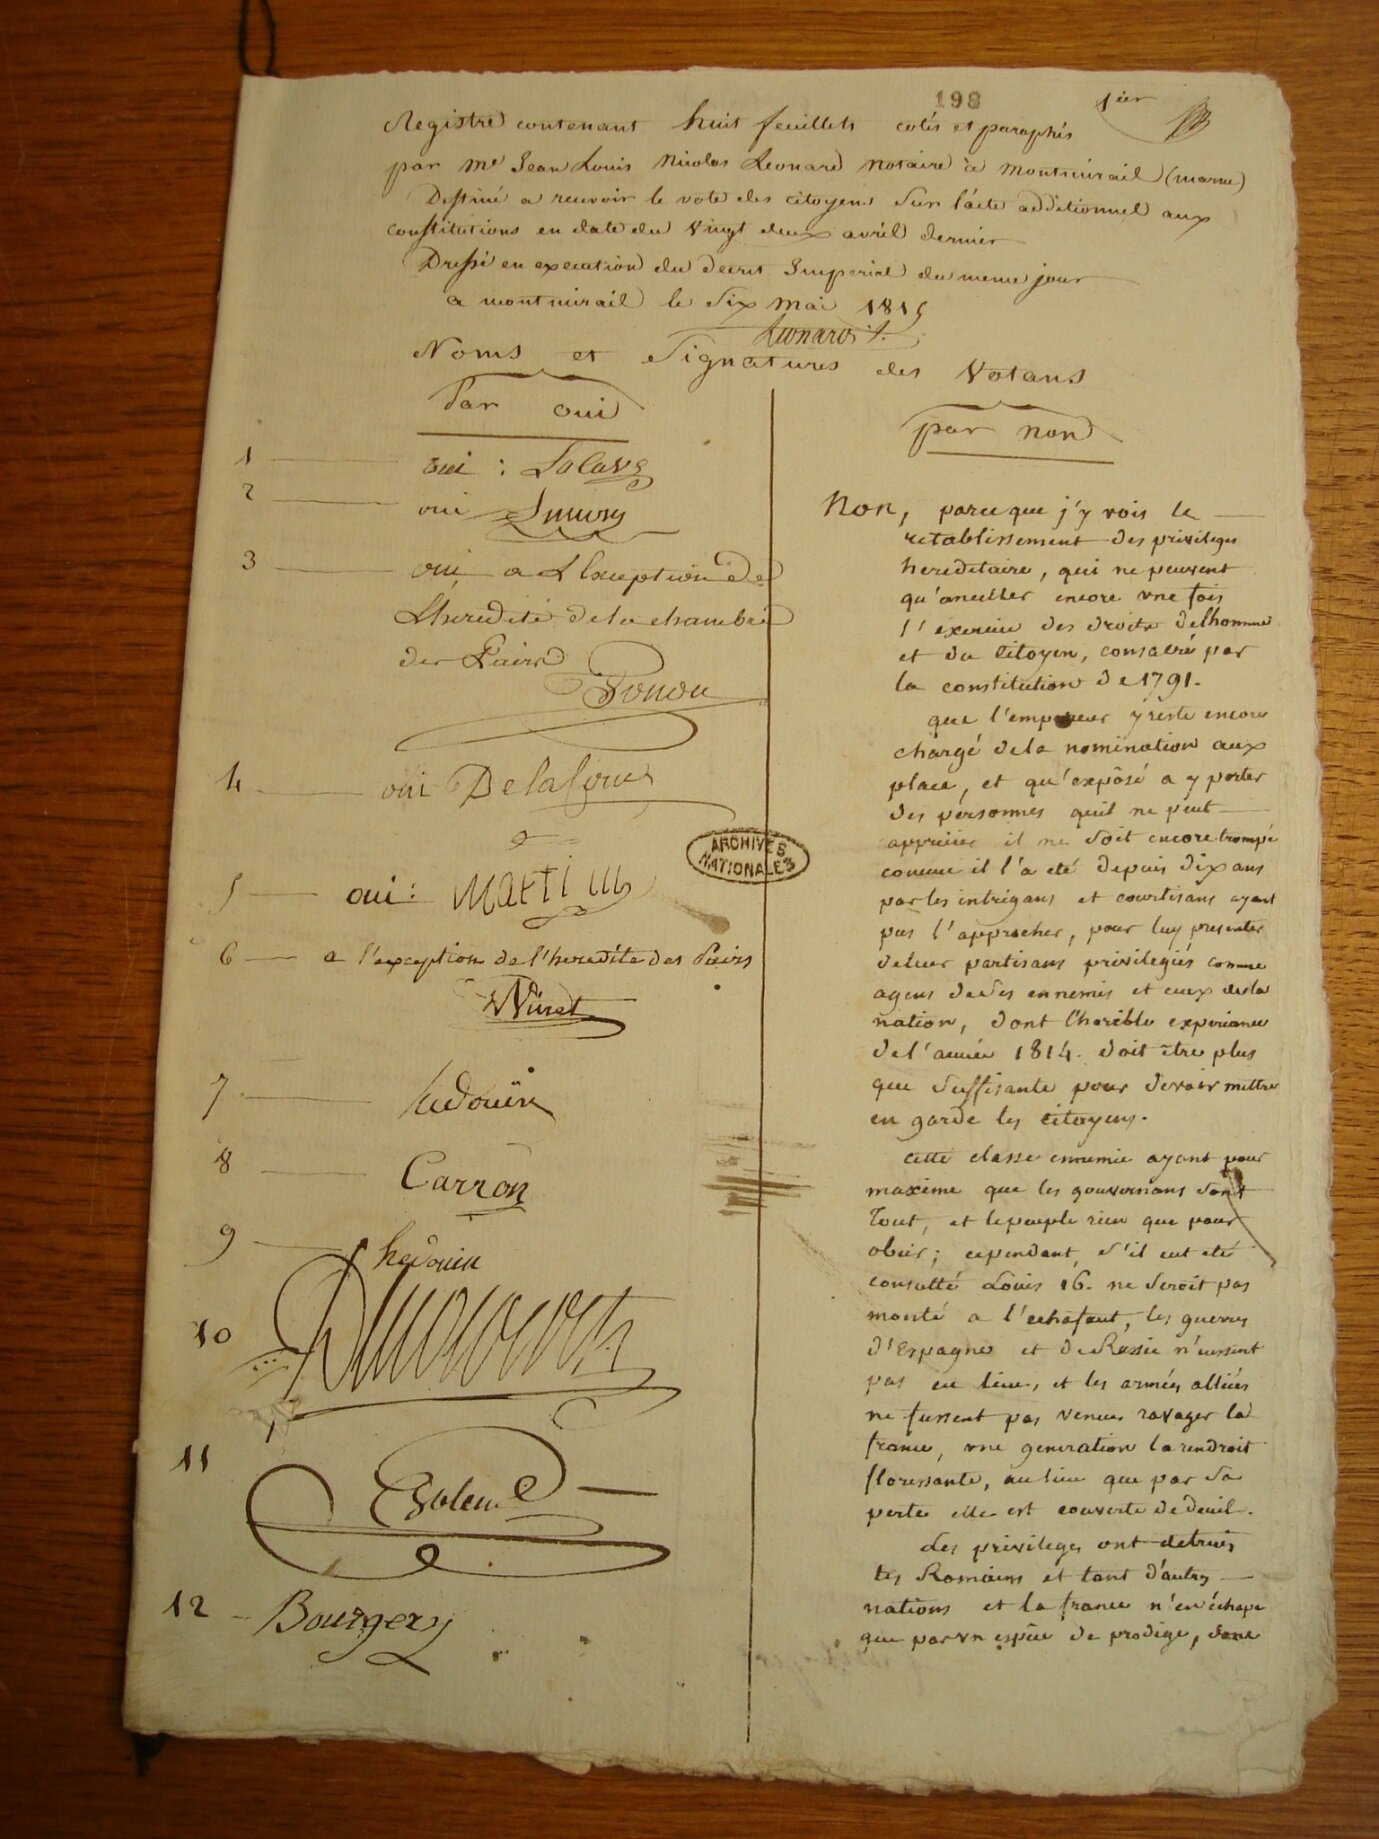 198
1ier
Registre contenant huit feuillets cotés et paraphés
par Me Jean Louis Nicolas Leonard Notaire à Montmirail (marne)
Destiné a recevoir le vote des citoyens Sur l'acte additionnel aux
constitutions en date du Vingt deux avril dernier
Dressé en execution du Decret Imperial du meme jour
a montmirail le Six Mai 1815
Leonard
Noms et Signatures des Votans
Par oui
1 oui :
2 oui
3 oui a L'exception de
L'heredité de la chambre
des Pairs
4 oui Delacour
ARCHIVES
NATIONALES
5 oui : Martin
6 a l'exception de l'heredité des Pairs
7
8 Carron
9 hedouin
10
11
12 Bourgery
par non
Non, parce que j'y vois le
retablissement des privileges
hereditaire, qui ne peuvent
qu'anuller encore une fois
l'exercice des droits delhomme
et du Citoyen, consacré par
la constitution de 1791.
que l'empereur y reste encore
chargé dela nomination aux
place, et qu'expôsé a y porter
des personnes quil ne peut
apprecier il ne soit encore trompé
comme il l'a eté depuis dix ans
par les intrigans et courtisans ayant
pus l'approcher, pour luy presenter
deleur partisans privilegiés comme
agens de ses ennemis et ceux dela
nation, dont l'horible experiance
de l'année 1814. doit être plus
que suffisante pour devoir mettre
en garde les citoyens.
cette classe ennemie ayant pour
maxime que les gouvernans sont
Tout, et le peuple rien que pour
obeir ; cependant s'il eut eté
consulté Louis 16. ne seroit pas
monté a l'echafaut, les guerres
d'Espagne et de Russie n'eussent
pas eu lieu, et les armées alliées
ne fussent pas venues ravager la
france, une generation la rendroit
florissante, au lieu que par sa
perte elle est couverte de deuil.
Les privileges ont detruis
les Romains et tant d'autres
nations et la france n'en échape
que par un espèce de prodige, donc